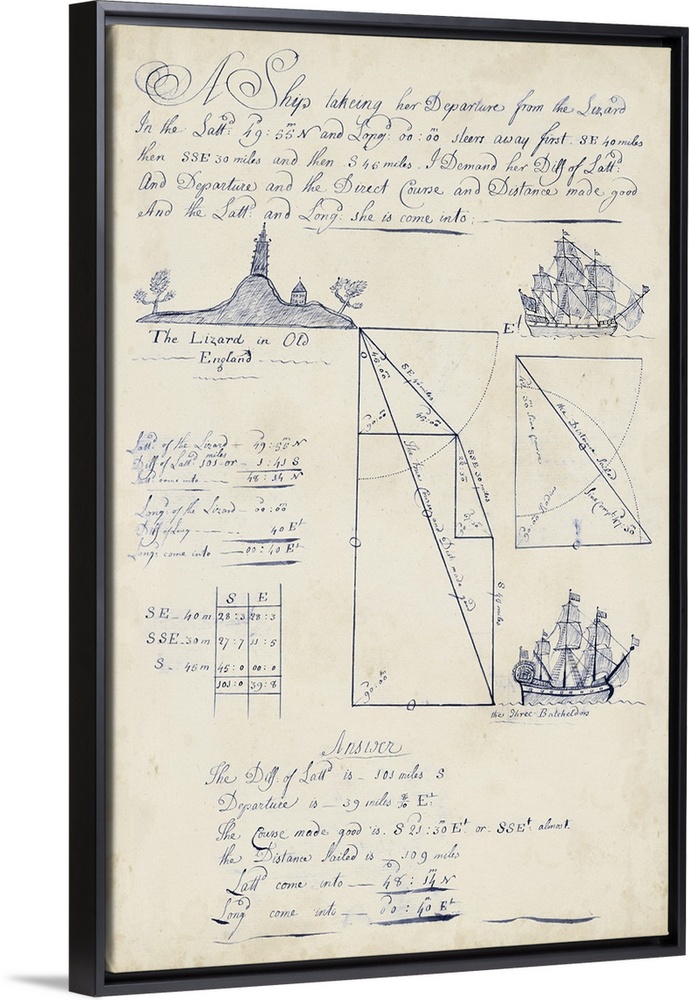 A Ship takeing her Departure from the Lizard
In the Lattd: 49:55 N and Longd: 00:00 steers away first SE 40 miles
then SSE 30 miles and then S 45 miles I Demand her Diff of Lattd:
And Departure and the Direct Course and Distance made good
And the Lattd: and Longd: she is come into:
The Lizard in Old
England
E
45:00
SE 40 miles
45:00
90:00
SSE 30 miles
The true Course and Dist made good
S 45 miles
90:00
the Distance Sailed
Sine Course
90:00 Radius
Sine Compt
the Three Batcheldors
Lattd of the Lizard 49:55 N
Diff of Lattd 101 miles or 1:41 S
Lattd come into 48:14 N
Longd of the Lizard 00:00
Diff of Long 40 Et
Longd come into 00:40 Et
S E
SE 40 m 28:3 28:3
SSE 30 m 27:7 11:5
S 45 m 45:0 00:0
101:0 39:8
Answer
The Diff: of Lattd is 101 miles S
Departure is 39 miles 8/10 Et
The Course made good is S 21:30 Et or SSEt almost
the Distance Sailed is 109 miles
Lattd come into 48:14 N
Longd come into 00:40 Et